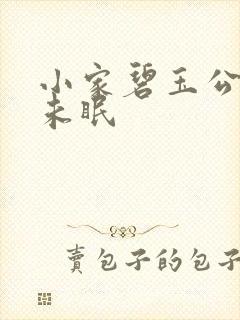 小家碧玉公
未眠
賣包子的包子